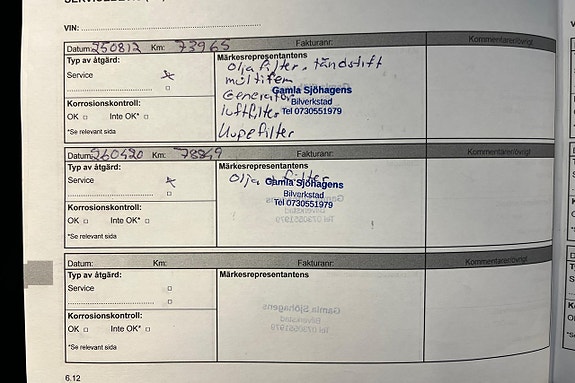 VIN:
Datum: 250812 Km: 73965 Fakturanr: Kommentarer/övrigt
Typ av åtgärd: Märkesrepresentantens
Service Olja filter, tändstift
multirem
Generator Gamla Sjöhagens
Bilverkstad
Korrosionskontroll: luftfilter Tel 0730551979
OK Inte OK*
*Se relevant sida Kupefilter
Datum: 260420 Km: 78849 Fakturanr: Kommentarer/övrigt
Typ av åtgärd: Märkesrepresentantens
Service Olja filter Gamla Sjöhagens
Bilverkstad
Tel 0730551979
Korrosionskontroll:
OK Inte OK*
*Se relevant sida
Datum: Km: Fakturanr: Kommentarer/övrigt
Typ av åtgärd: Märkesrepresentantens
Service
Korrosionskontroll:
OK Inte OK*
*Se relevant sida
6.12